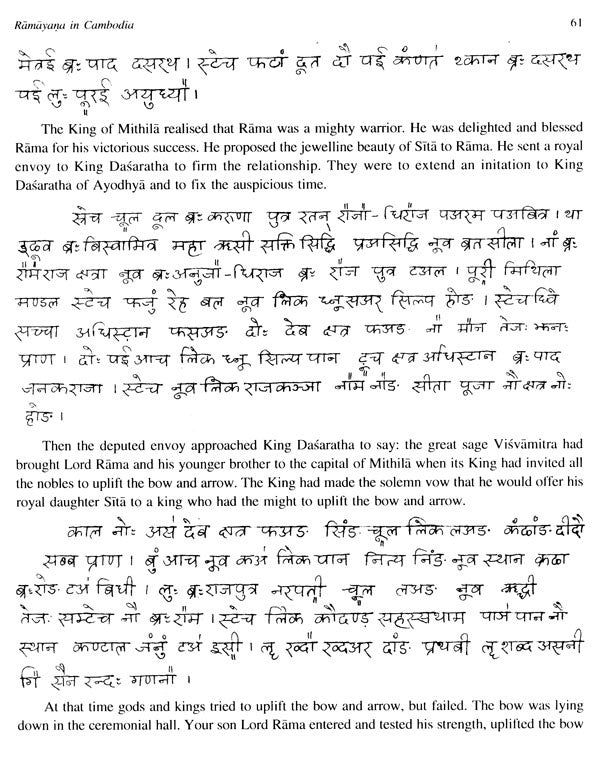 Rāmāyaṇa in Cambodia 61
मेत्रई ब्रः पाद दसरथ । स्टेच फटां दूत दौ पई कंणत थ्कान ब्रः दसरथ
पई लुः पूरई अयुध्यौ ।
The King of Mithilā realised that Rāma was a mighty warrior. He was delighted and blessed
Rāma for his victorious success. He proposed the jewelline beauty of Sītā to Rāma. He sent a royal
envoy to King Daśaratha to firm the relationship. They were to extend an initation to King
Daśaratha of Ayodhyā and to fix the auspicious time.
स्रेच चूल दूल ब्रः करुणा पुत्र रतन् राँजाँ-धिराँज पअरम पअबित्र । था
ब्रःबिस्वामित्र महा ऋसी सक्ति सिद्धि प्रअसिद्धि नूव ब्रत सीला । नाँ ब्रः
राँमराज क्षत्रा नूव ब्रःअनुजाँ-धिराज ब्रः राँज पुत्र टअल । पूरी मिथिला
मण्डल स्टेच फजुं रेह बल नूव लिक ध्नूसअर सिल्प होङ । स्टेच
सच्चा अधिस्टान फसअङ दोः देब क्षत्र फअङ नाँ माँन तेजः
प्राण । दोः पई आच लिक ध्नू सिल्प पान दूच क्षत्र अधिस्टान ब्रः पाद
जनकराजा । स्टेच नूव लिक राजकञ्ञा नाँम नाँङ सीता पूजा नौ क्षत्र नोः
होङ ।
Then the deputed envoy approached King Daśaratha to say: the great sage Viśvāmitra had
brought Lord Rāma and his younger brother to the capital of Mithilā when its King had invited all
the nobles to uplift the bow and arrow. The King had made the solemn vow that he would offer his
royal daughter Sītā to a king who had the might to uplift the bow and arrow.
काल नोः अस់ देब क्षत्र फअङ सिंङ चूल लिक लअङ कंढांङ दीदौ
सब्ब प्राण । बुं आच नूव कअं लिक पान नित्य निंङ नूव स्थान कढा
ब्रःरोङ टअं बिधी । लुः ब्रःराजपुत्र नरपती चूल लअङ नूव ऋद्धी
तेजः सम्टेच नाँ ब्रःराँम । स्टेच लिक कौदण्ड सहस्सथाम पान नौ
स्थान कण्टाल जंनुं टअं इसी । लृ दाँङ प्रथबी लृ शब्द असनी
गणनाँ ।
At that time gods and kings tried to uplift the bow and arrow, but failed. The bow was lying
down in the ceremonial hall. Your son Lord Rāma entered and tested his strength, uplifted the bow